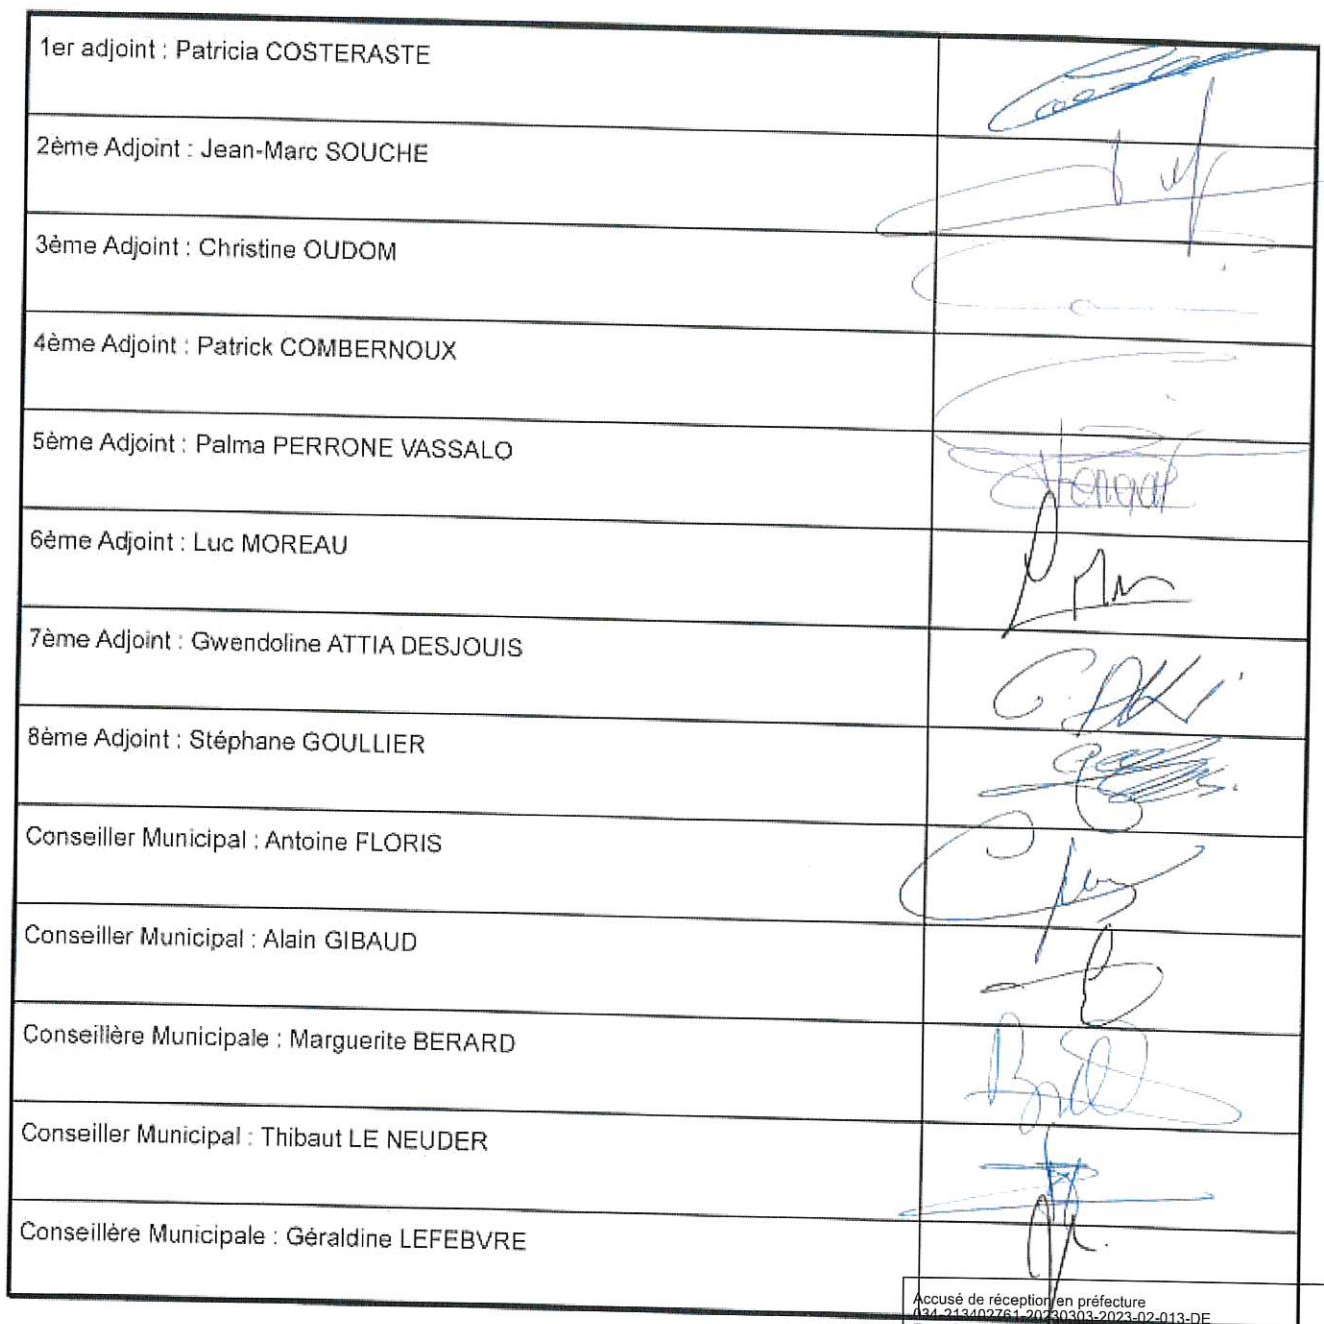 1er adjoint : Patricia COSTERASTE
2ème Adjoint : Jean-Marc SOUCHE
3ème Adjoint : Christine OUDOM
4ème Adjoint : Patrick COMBERNOUX
5ème Adjoint : Palma PERRONE VASSALO
6ème Adjoint : Luc MOREAU
7ème Adjoint : Gwendoline ATTIA DESJOUIS
8ème Adjoint : Stéphane GOULLIER
Conseiller Municipal : Antoine FLORIS
Conseiller Municipal : Alain GIBAUD
Conseillère Municipale : Marguerite BERARD
Conseiller Municipal : Thibaut LE NEUDER
Conseillère Municipale : Géraldine LEFEBVRE
Accusé de réception en préfecture
034-213402761-20230303-2023-02-013-DE